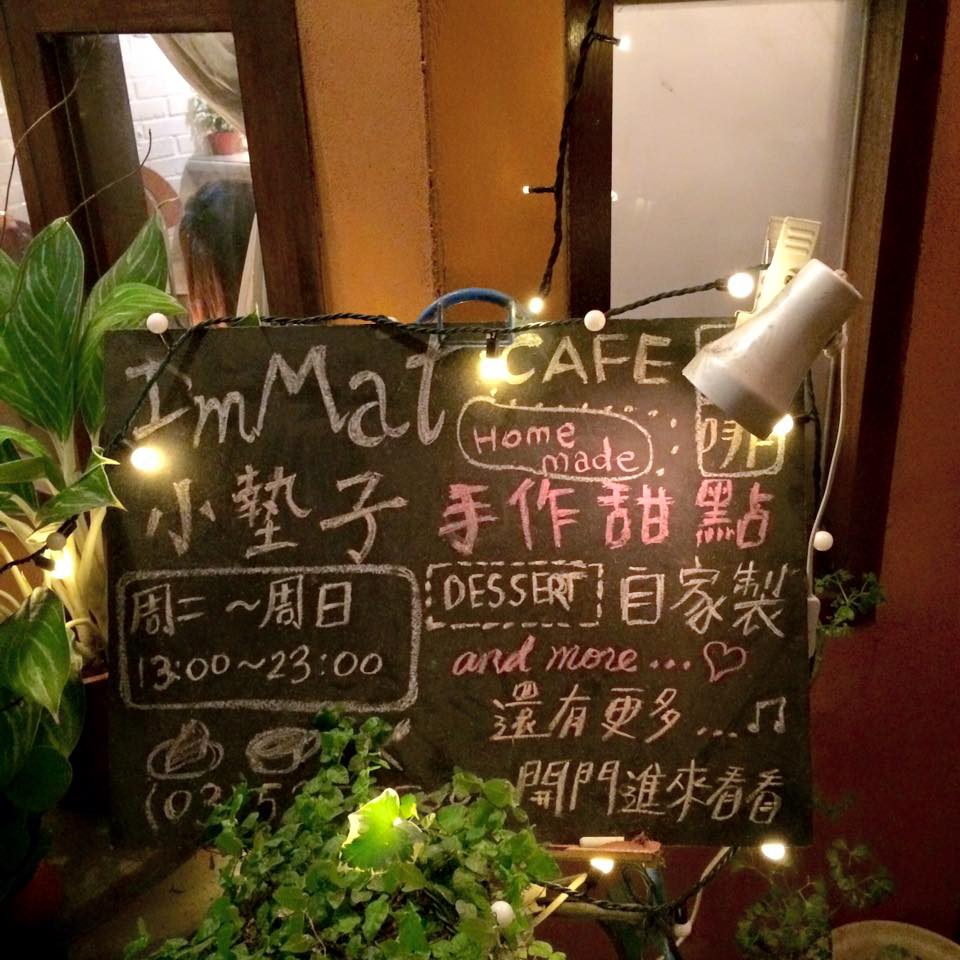 I'mMat CAFE
啡
Home
made
小墊子 手作甜點
周二～周日
13:00～23:00
DESSERT 自家製
and more...
還有更多...
開門進來看看
(03)5